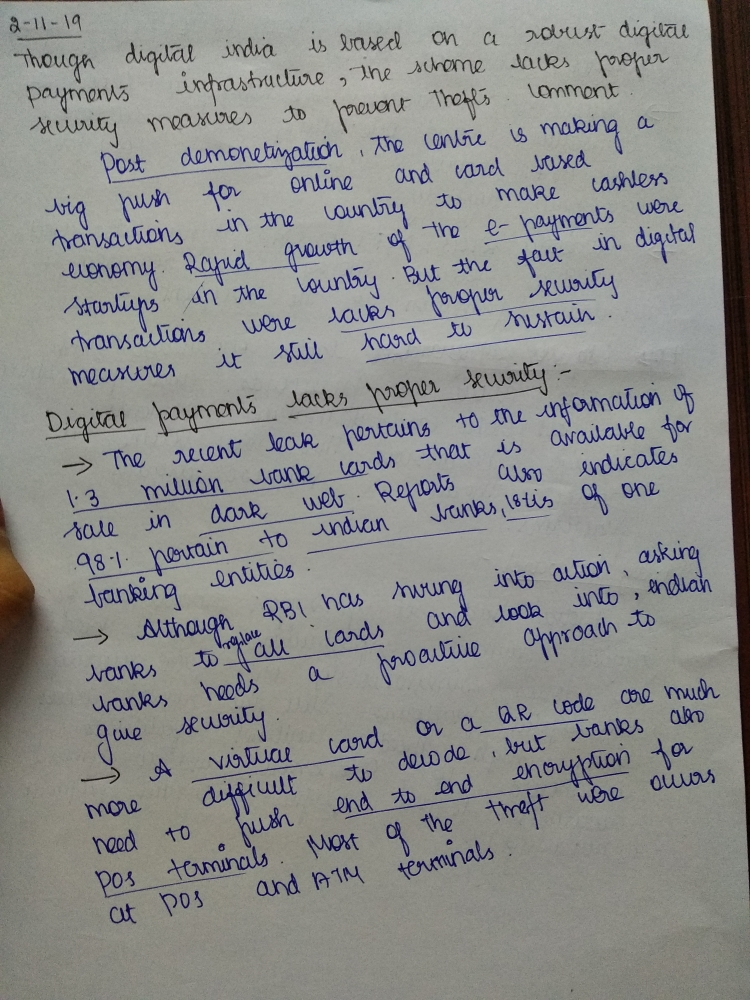 2-11-19
Though digital india is based on a robust digital
payments infrastructure, the scheme lacks proper
security measures to prevent thefts. comment.
Post demonetization, the centre is making a
big push for online and card based
transactions in the country to make cashless
economy. Rapid growth of the e-payments were
startups in the country. But the fact in digital
transactions were lacks proper security
measures it still hard to sustain.
Digital payments lacks proper security:-
→ The recent leak pertains to the information of
1.3 million bank cards that is available for
sale in dark web. Reports also indicates
98% pertain to indian banks, 18% is of one
banking entities.
→ Although RBI has swung into action, asking
banks to replace all cards and look into, indian
banks needs a proactive approach to
give security.
→ A virtual card or a QR code are much
more difficult to decode, but banks also
need to push end to end encryption for
POS terminals. Most of the theft were occurs
at POS and ATM terminals.